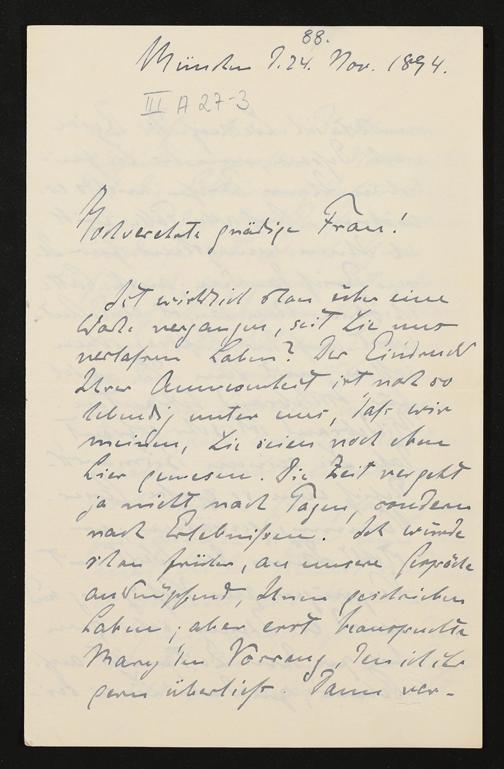 88.
München d. 24. Nov. 1894.
III A 27-3
Hochverehrte gnädige Frau!
Ist wirklich schon über eine
Woche vergangen, seit Sie uns
verlassen haben? Der Eindruck
Ihrer Anwesenheit ist noch so
lebendig unter uns, daß wir
meinen, Sie seien noch eben
hier gewesen. Die Zeit vergeht
ja nicht nach Tagen, sondern
nach Erlebnißen. Ich würde
schon früher, an unsere Gespräche
anknüpfend, Ihnen geschrieben
haben; aber erst beanspruchte
Mary den Vorrang, den ich ihr
gern überließ. Dann ver-